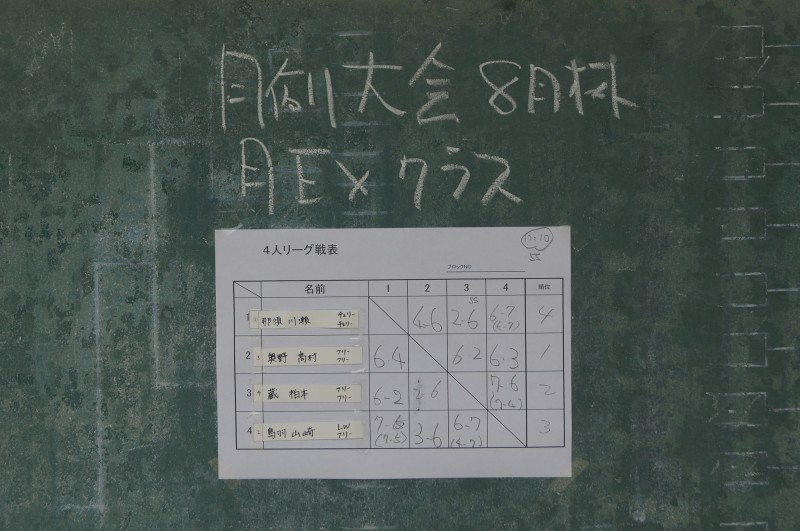 月例大会 8月杯
月EXクラス
12:10
55
4人リーグ戦表
ブロックNO
名前 1 2 3 4 順位
那須 川瀬 チェリー チェリー 4-6 2-6 6-7 4
55
2 奥野 高村 フリー フリー 6-4 6 2 6-3 1
3 蔵 柏本 フリー フリー 6-2 2-6 7-6 2
4 鳥羽 山崎 LW フリー 7-6 3-6 6-7 3
(7-5) (4-7)